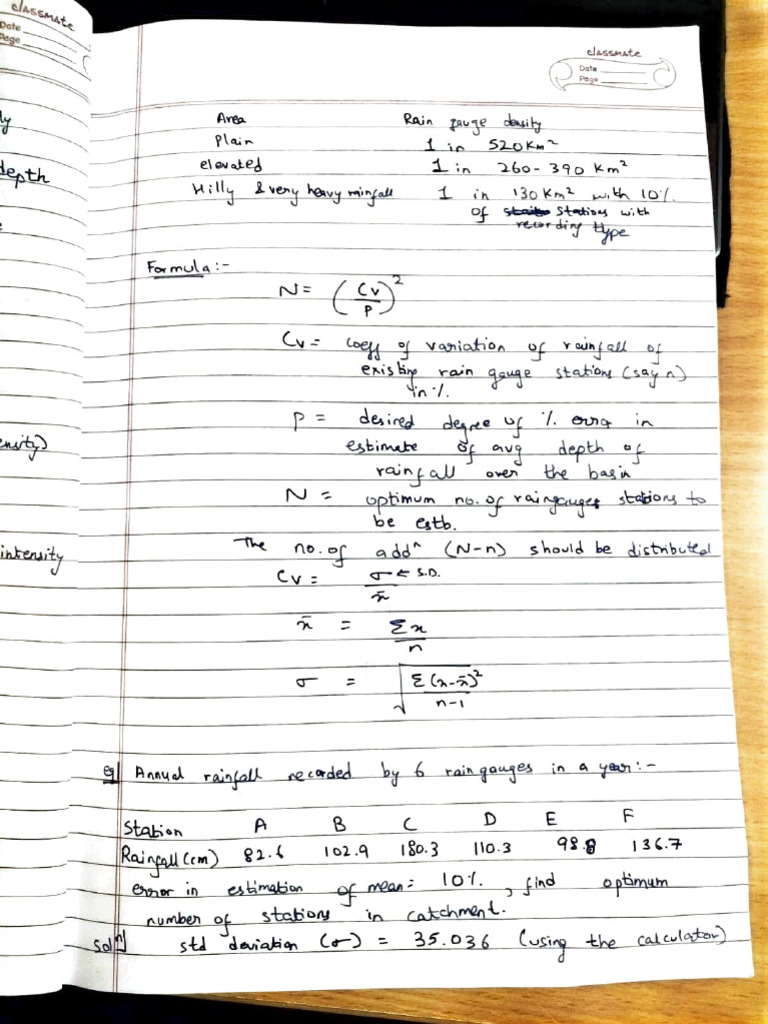 classmate
Date
Page
ly
depth
ensity)
intensity
classmate
Date
Page
Area Rain gauge density
Plain 1 in 520 Km²
elevated 1 in 260-390 Km²
Hilly & very heavy rainfall 1 in 130 Km² with 10%
of stations with
recording type
Formula:-
N = (Cv/P)²
Cv = coeff of variation of rainfall of
existing rain gauge stations (say n)
in %.
P = desired degree of % error in
estimate of avg depth of
rainfall over the basin
N = optimum no. of raingauges stations to
be estb.
The no. of addⁿ (N-n) should be distributed
Cv = σ ← S.D. / x̄
x̄ = Σx / n
σ = √(Σ(x-x̄)² / n-1)
eg| Annual rainfall recorded by 6 rain gauges in a year:-
Station A B C D E F
Rainfall (cm) 82.6 102.9 180.3 110.3 98.8 136.7
error in estimation of mean = 10%, find optimum
number of stations in catchment.
solⁿ| std deviation (σ) = 35.036 (using the calculator)